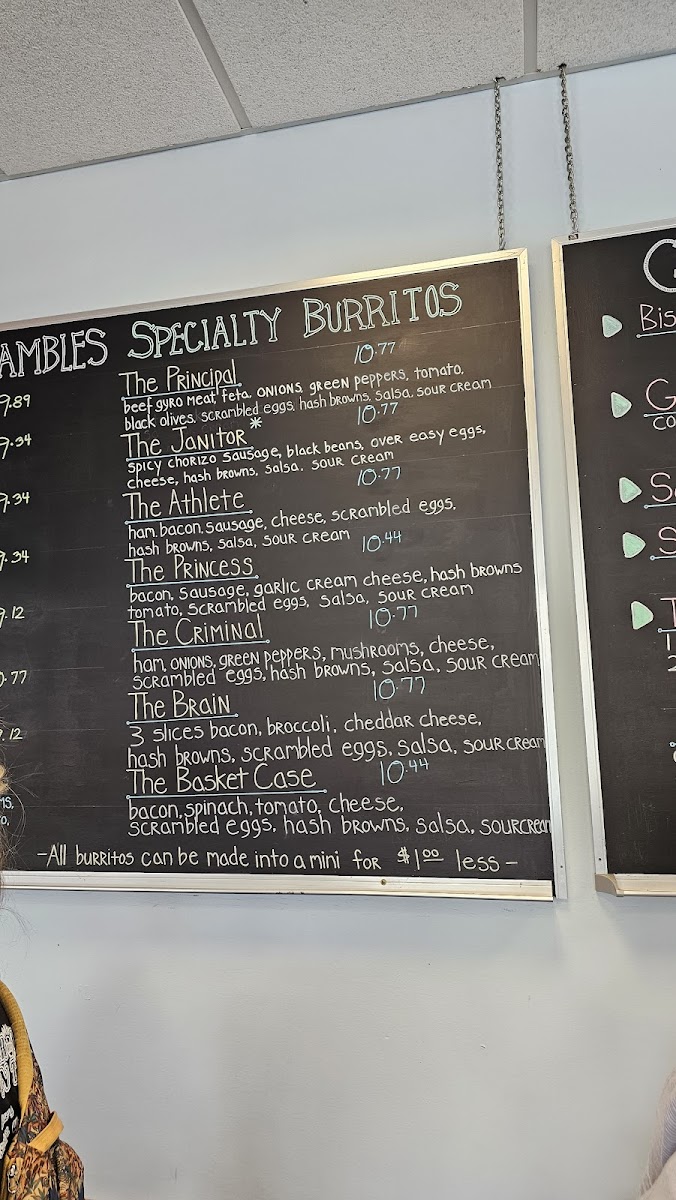 AMBLES SPECIALTY BURRITOS
9.89
9.34
9.34
9.34
9.12
.77
.12
The Principal 10.77
beef gyro meat, feta, onions, green peppers, tomato,
black olives, scrambled eggs, hash browns, salsa, sour cream
The Janitor* 10.77
spicy chorizo sausage, black beans, over easy eggs,
cheese, hash browns, salsa, sour cream
The Athlete 10.77
ham, bacon, sausage, cheese, scrambled eggs,
hash browns, salsa, sour cream
The Princess 10.44
bacon, sausage, garlic cream cheese, hash browns
tomato, scrambled eggs, salsa, sour cream
The Criminal 10.77
ham, onions, green peppers, mushrooms, cheese,
scrambled eggs, hash browns, salsa, sour cream
The Brain 10.77
3 slices bacon, broccoli, cheddar cheese,
hash browns, scrambled eggs, salsa, sour cream
The Basket Case 10.44
bacon, spinach, tomato, cheese,
scrambled eggs, hash browns, salsa, sour cream
-All burritos can be made into a mini for $1.00 less-
G
Bis
G
co
S
S
T